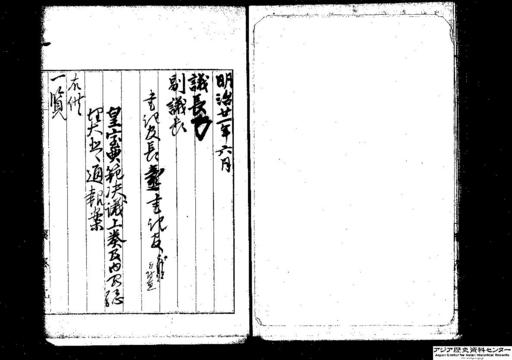 明治廿一年六月
議長
副議長
書記官長 書記官
皇室典範決議上奏及内閣総
理大臣ヘ通報案
右供
一覧
アジア歴史資料センター
Japan Center for Asian Historical Records